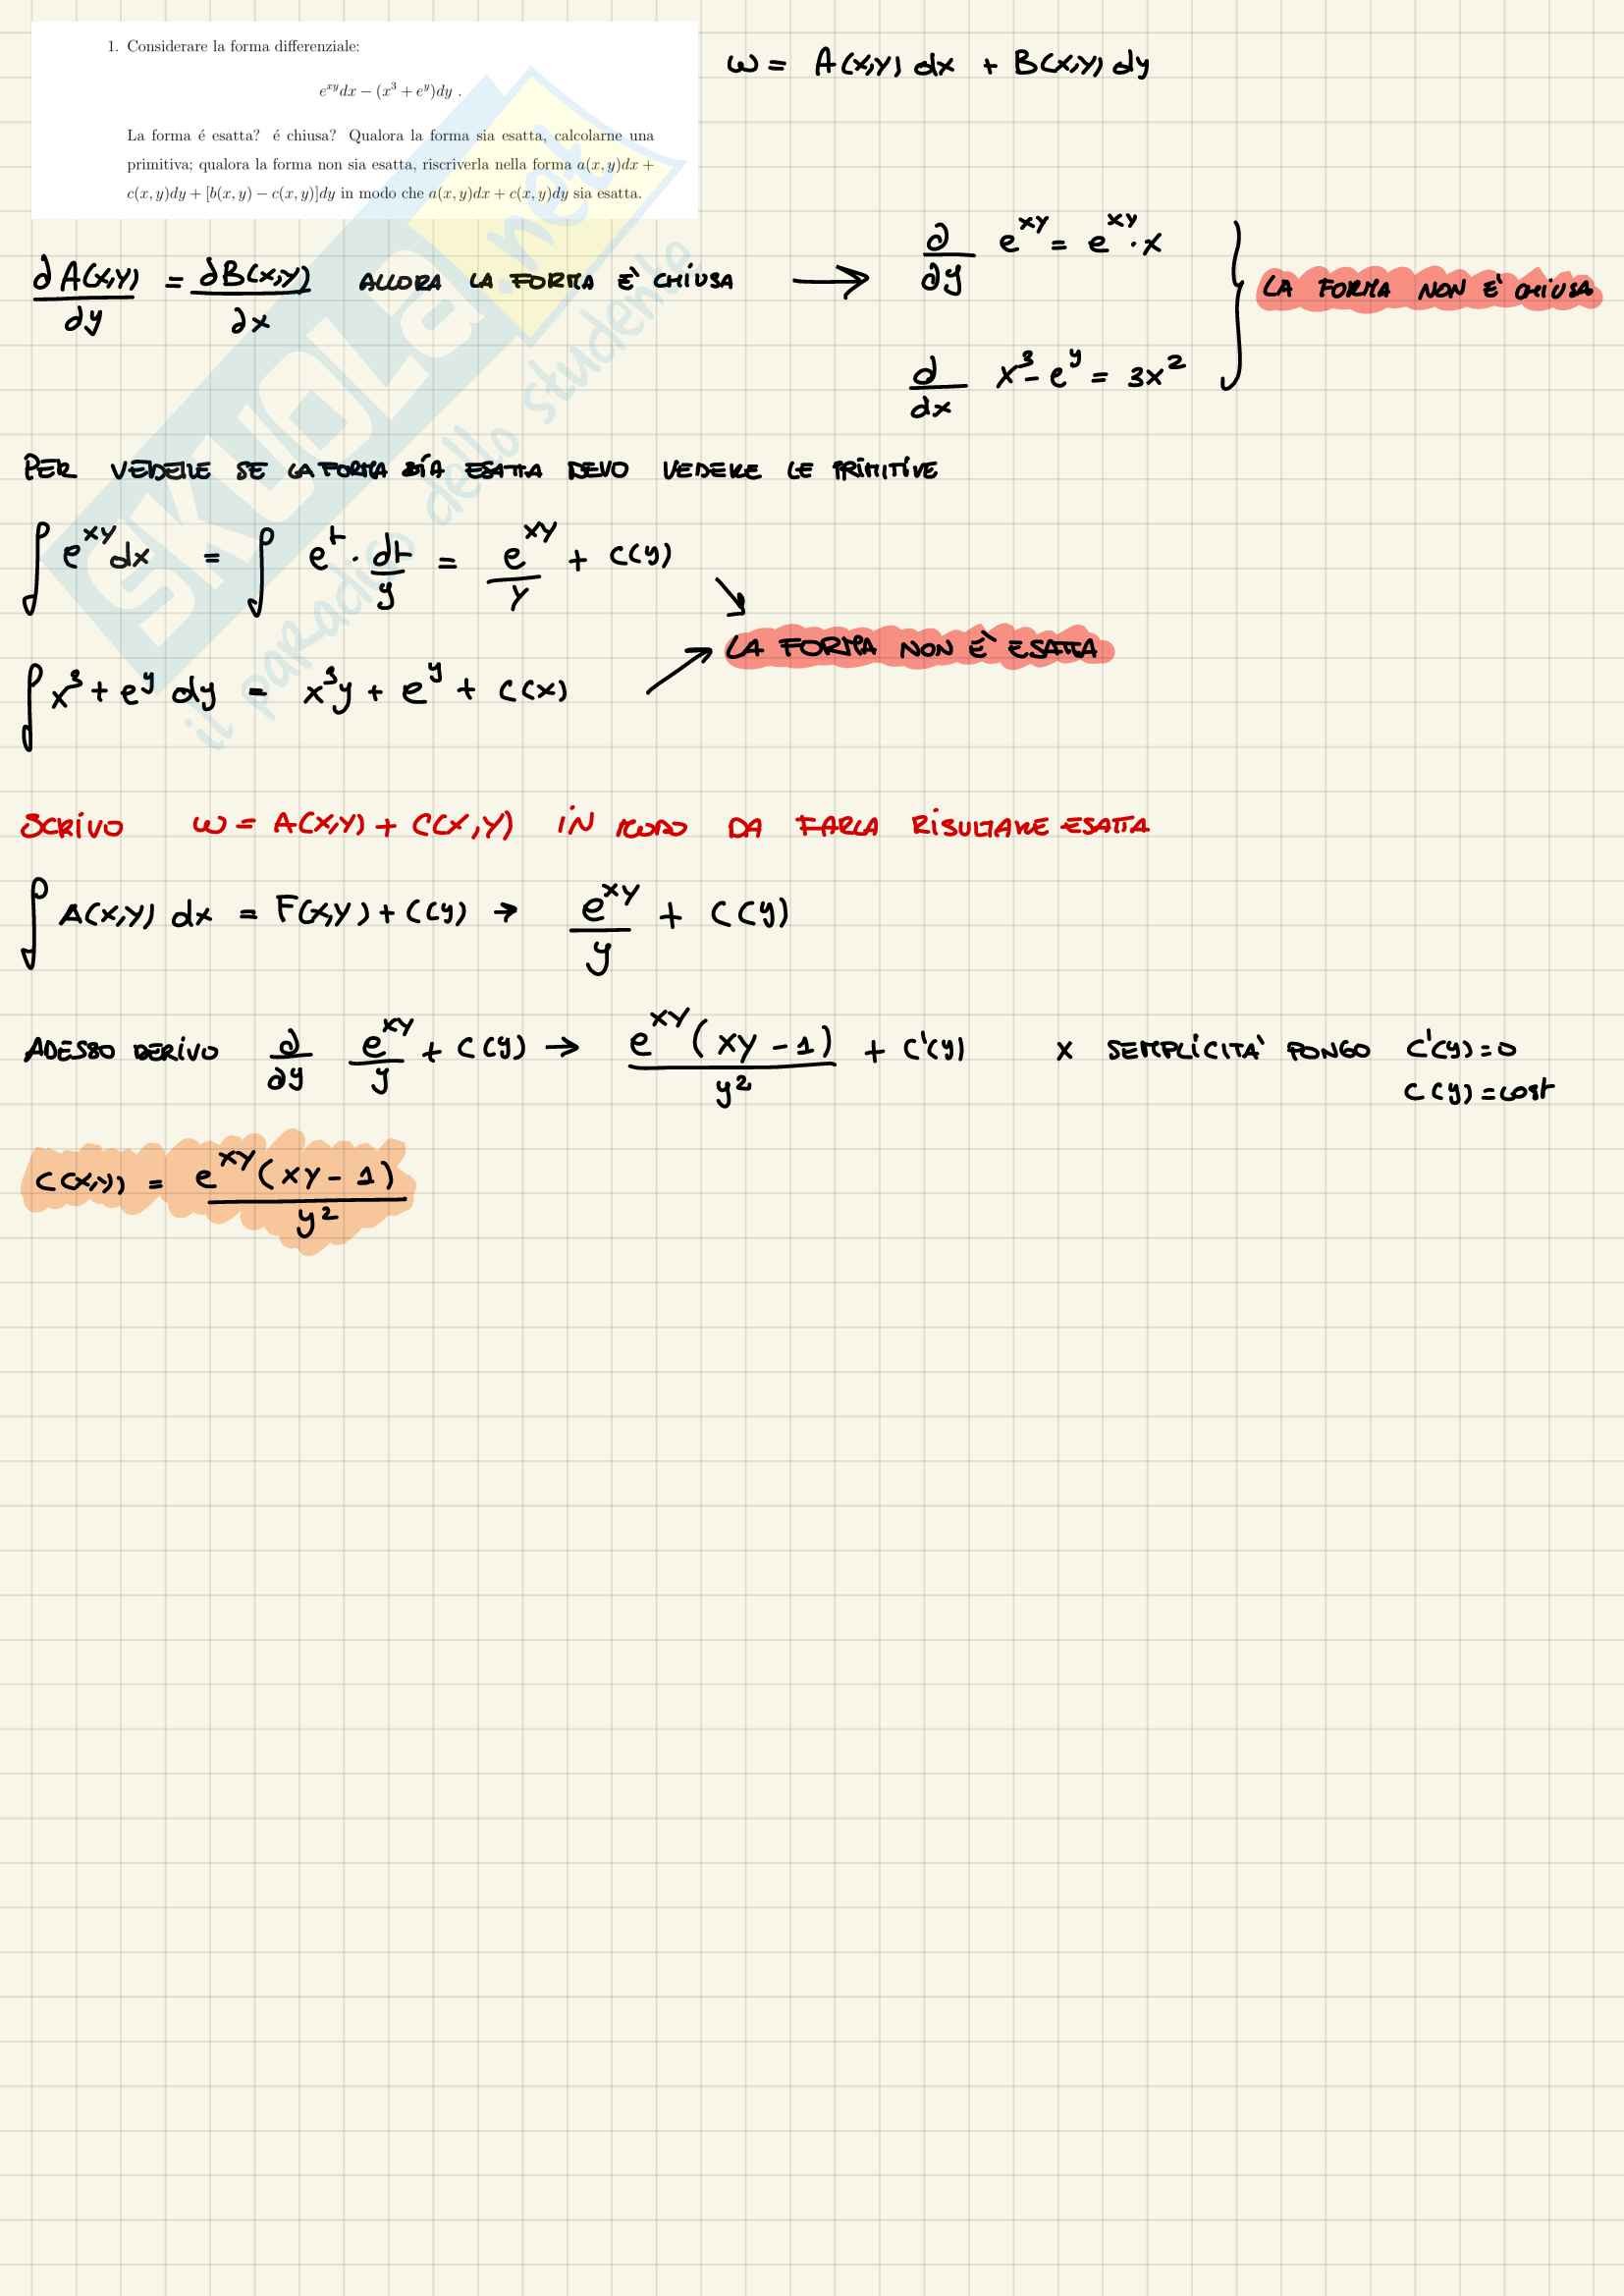 1. Considerare la forma differenziale:
e^{xy}dx − (x^3 + e^y)dy .
La forma é esatta? é chiusa? Qualora la forma sia esatta, calcolarne una
primitiva; qualora la forma non sia esatta, riscriverla nella forma a(x, y)dx +
c(x, y)dy + [b(x, y) − c(x, y)]dy in modo che a(x, y)dx + c(x, y)dy sia esatta.
ω = A(x,y) dx + B(x,y) dy
∂A(x,y)/∂y = ∂B(x,y)/∂x ALLORA LA FORMA È CHIUSA → ∂/∂y e^{xy} = e^{xy} · x
∂/∂x x^3 - e^y = 3x^2
LA FORMA NON È CHIUSA
PER VEDERE SE LA FORMA SIA ESATTA DEVO VEDERE LE PRIMITIVE
∫ e^{xy} dx = ∫ e^t · dt/y = e^{xy}/y + C(y)
∫ x^3 + e^y dy = x^3y + e^y + C(x)
LA FORMA NON È ESATTA
SCRIVO ω = A(x,y) + C(x,y) IN MODO DA FARLA RISULTARE ESATTA
∫ A(x,y) dx = F(x,y) + C(y) → e^{xy}/y + C(y)
ADESSO DERIVO ∂/∂y e^{xy}/y + C(y) → e^{xy}(xy - 1)/y^2 + C'(y) x SEMPLICITA' PONGO C'(y) = 0
C(y) = cost
C(x,y) = e^{xy}(xy - 1)/y^2
SKUOLA.net
il paradiso dello studente